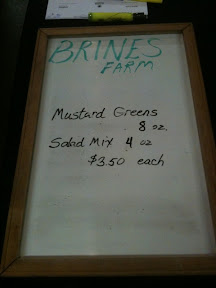 BRINES
FARM
Mustard Greens
8 oz.
Salad Mix 4 oz
$3.50 each